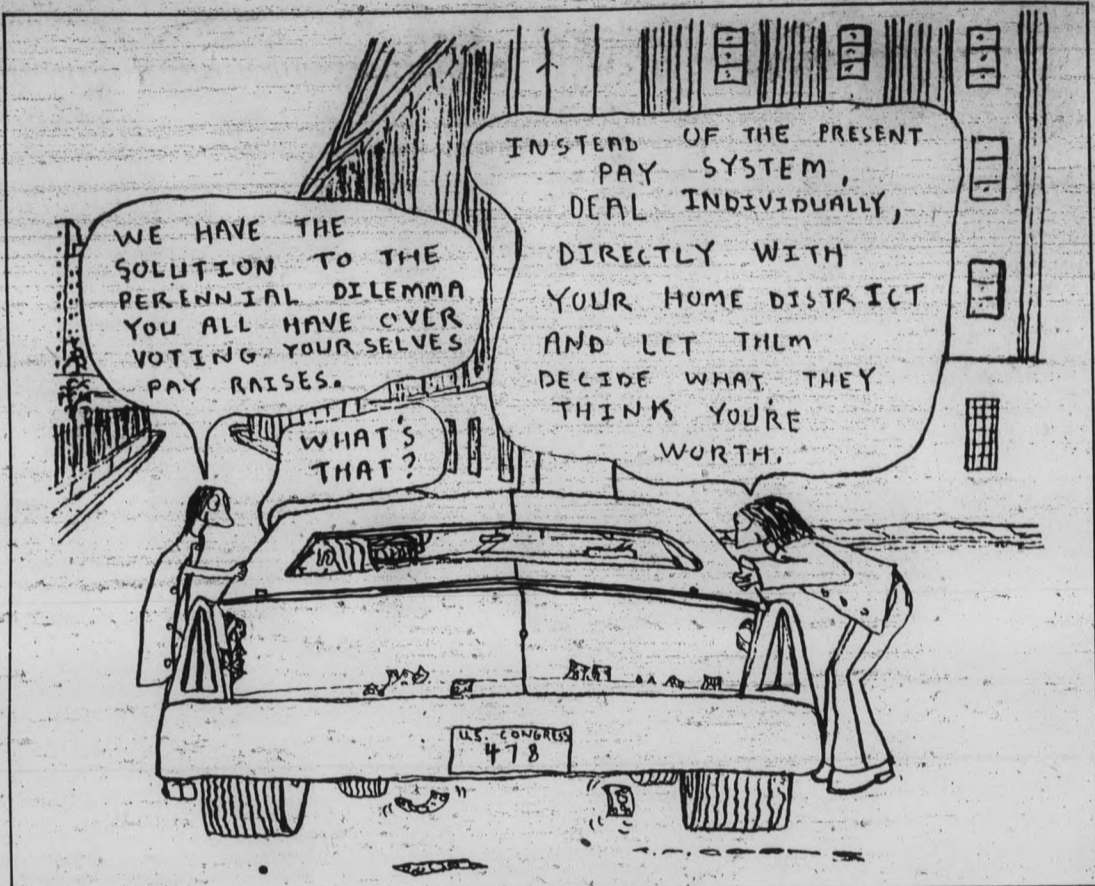 WE HAVE THE
SOLUTION TO THE
PERENNIAL DILEMMA
YOU ALL HAVE OVER
VOTING YOURSELVES
PAY RAISES.
WHAT'S
THAT?
INSTEAD OF THE PRESENT
PAY SYSTEM,
DEAL INDIVIDUALLY,
DIRECTLY WITH
YOUR HOME DISTRICT
AND LET THEM
DECIDE WHAT THEY
THINK YOU'RE
WORTH.
U.S. CONGRESS
478